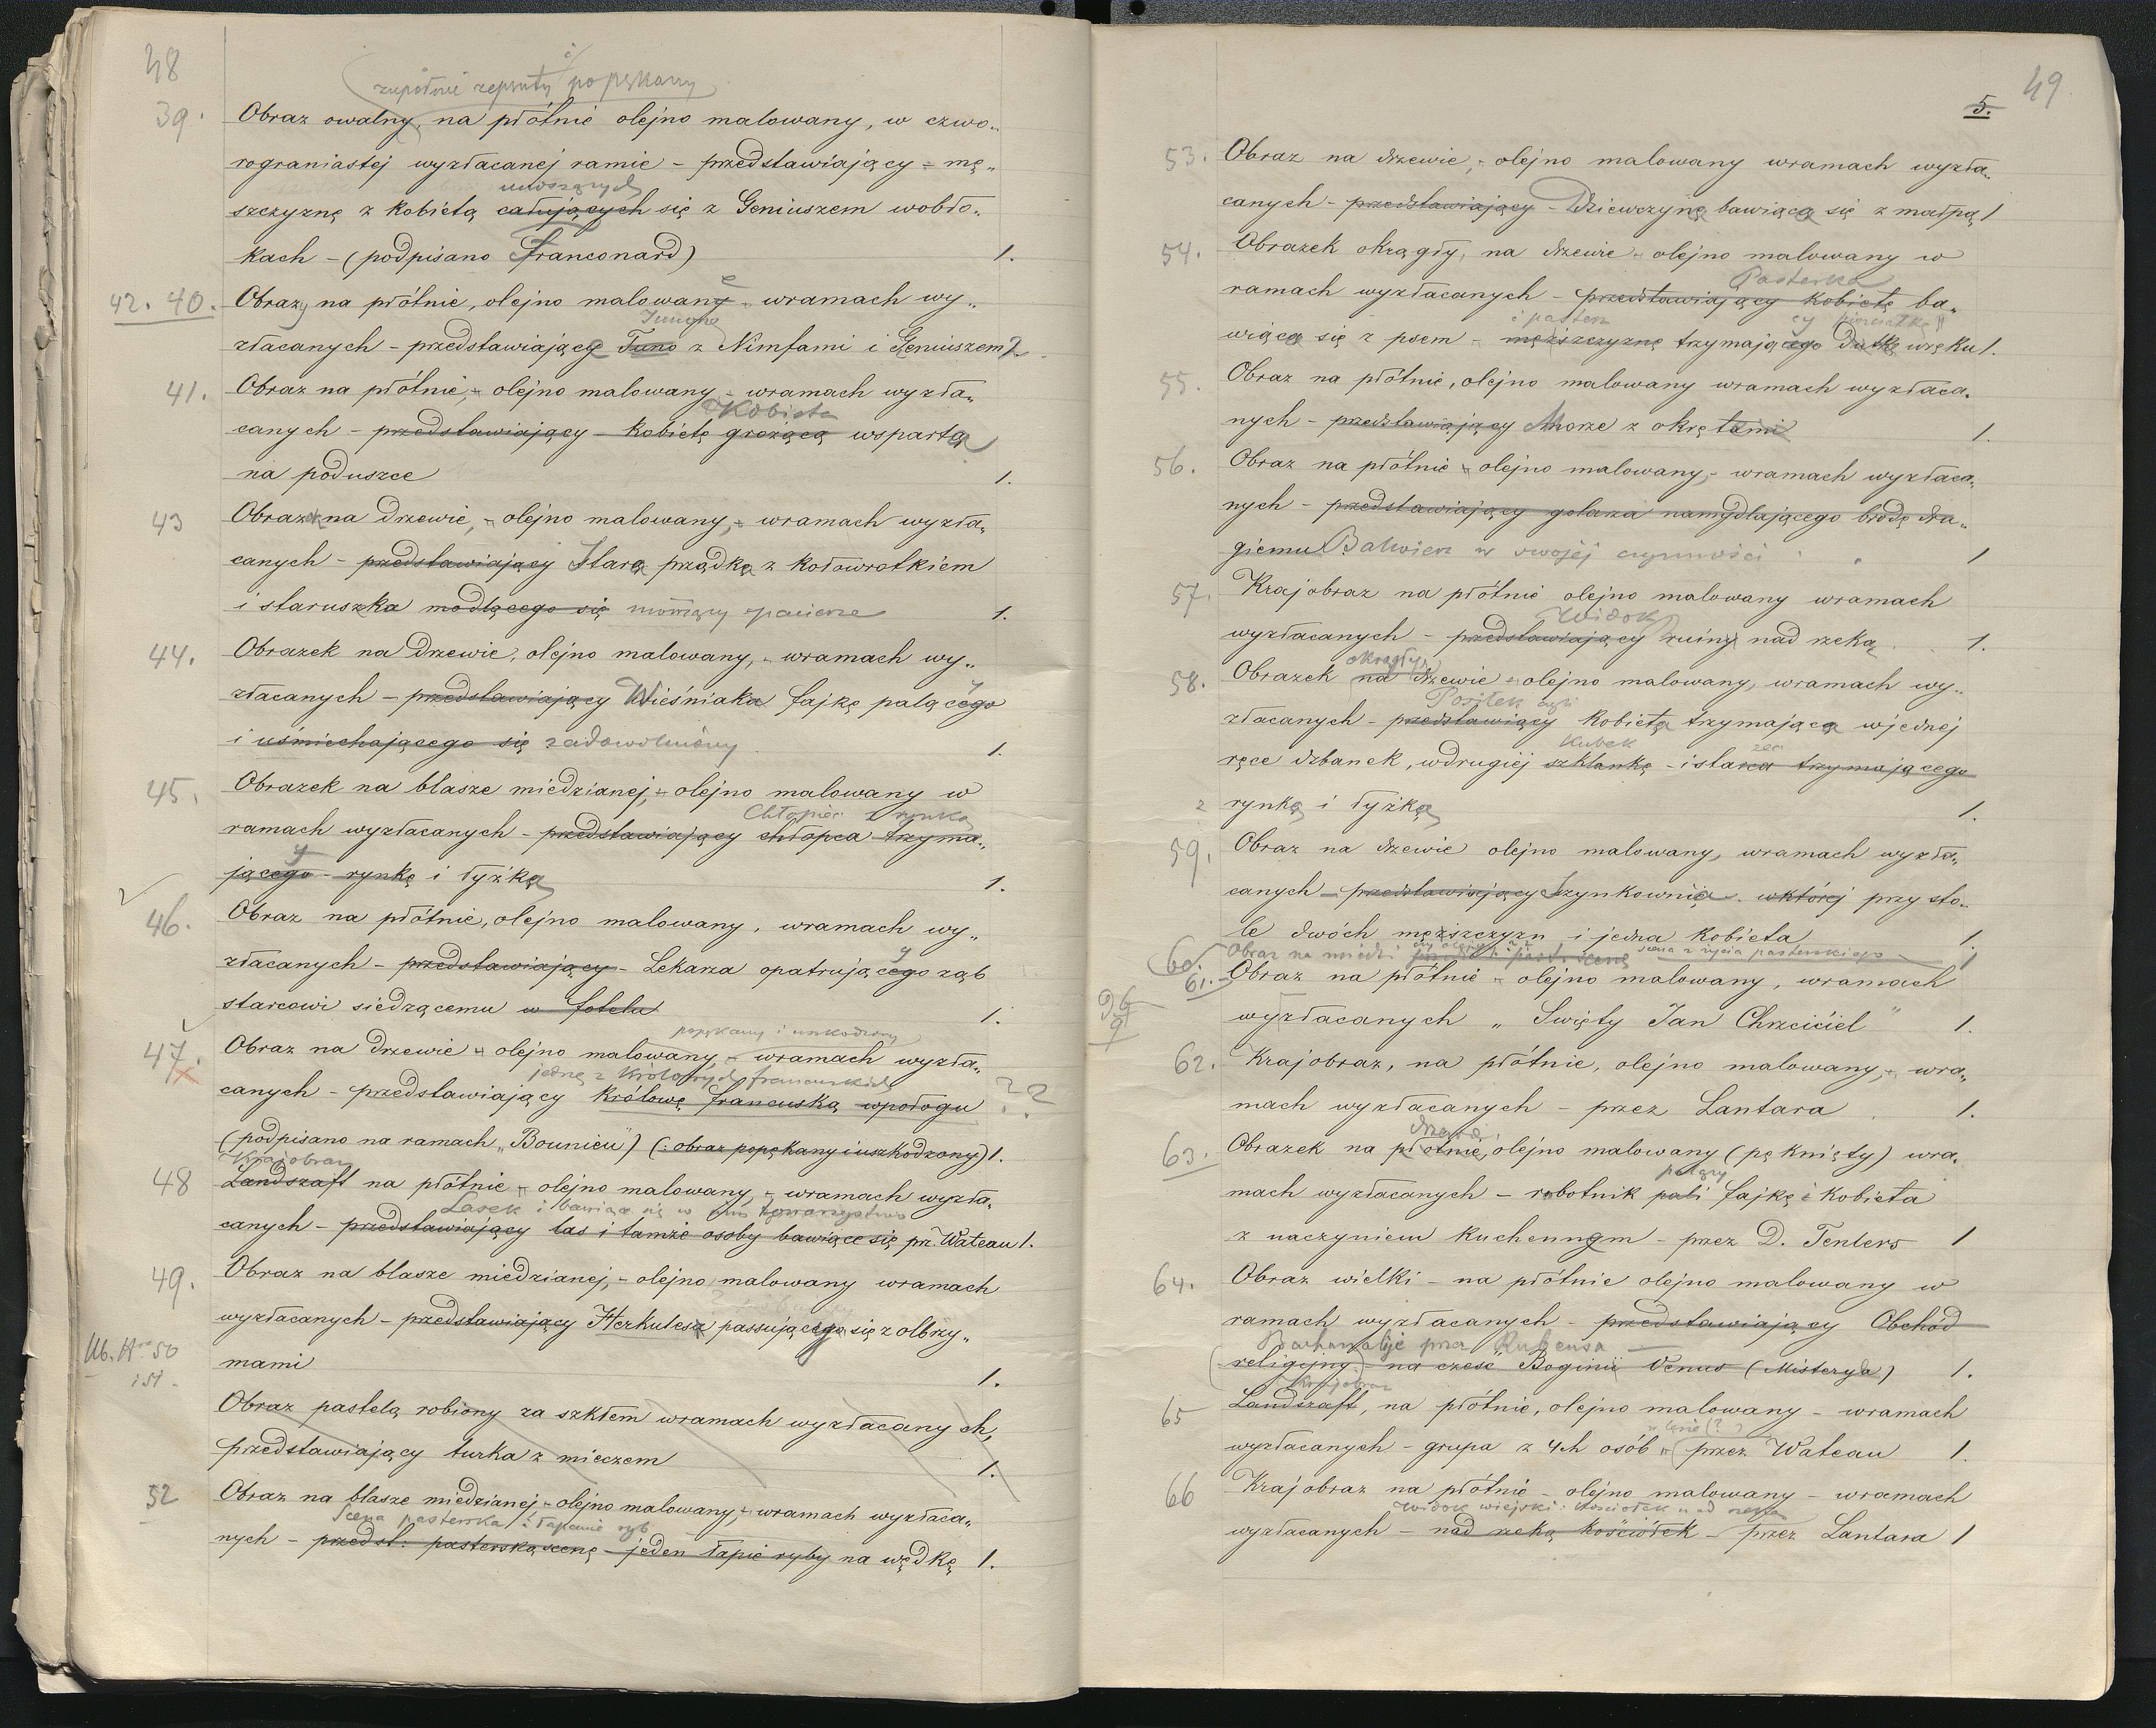 48
i
zupełnie zepsuty popękany
39. Obraz owalny, na płótnie olejno malowany, w czwo„
rograniastej wyzłacanej ramie – przedstawiający – mę„
unoszących
szczyznę z kobietą całujących się z Geniuszem wobło„
kach – (podpisano Franconard) 1.
e
42. 40. Obrazy na płótnie, olejno malowany – wramach wy„
Junonę
złacanych – przedstawiające Juno z Nimfami i Geniuszem 2.
41. Obraz na płótnie, – olejno malowany – wramach wyzła„
Kobieta
canych – przedstawiający – kobietę grożącą wspartą
na poduszce 1.
43 Obrazek na drzewie, – olejno malowany, – wramach wyzła„
canych – przedstawiający Stara prządka z kołowrotkiem
i staruszka modlącego się mówiący pacierze 1.
44. Obrazek na drzewie, olejno malowany, – wramach wy„
y
złacanych – przedstawiający Wieśniaka fajkę palącego
i uśmiechającego się zadowolniony 1.
45. Obrazek na blasze miedzianej, – olejno malowany w
Chłopiec z rynką
ramach wyzłacanych – przedstawiający chłopca trzyma„
y
jącego – rynkę i łyżką 1.
46. Obraz na płótnie, olejno malowany, wramach wy„
y
złacanych – przedstawiający – Lekarza opatrującego ząb
starcowi siedzącemu w fotelu 1.
popękany i uszkodzony
47. Obraz na drzewie – olejno malowany – wramach wyzła„
jedną z Królowych francuskich
canych – przedstawiający Królowę francuską wpołogu ??
(podpisano na ramach „Bounieu") (: obraz popękany i uszkodzony) 1.
Krajobraz
48 Landszaft na płótnie – olejno malowany, – wramach wyzła„
Lasek i bawiące się w nim towarzystwo
canych – przedstawiający las i tamże osoby bawiące się pr. Wateau 1.
49. Obraz na blasze miedzianej, – olejno malowany wramach
wyzłacanych – przedstawiający Herkulesa passującego się z olbrzy„
Ub. Nro 50 mami 1.
i 51.
Obraz pastelą robiony za szkłem wramach wyzłacanych,
przedstawiający turka z mieczem 1.
52 Obraz na blasze miedzianej – olejno malowany, – wramach wyzłaca„
Scena pasterska i łapanie ryb
nych – przedst: pasterską scenę – jeden łapie ryby na wędkę 1.
49
5.
53. Obraz na drzewie, – olejno malowany wramach wyzła„
canych – przedstawiający – Dziewczyna bawiąca się z małpą 1
54. Obrazek okrągły, na drzewie – olejno malowany w
Pasterka
ramach wyzłacanych – przedstawiający kobietę ba„
i pasterz cy
wiąca się z psem – męższczyznę trzymającego dutkę wręku 1.
55. Obraz na płótnie, olejno malowany wramach wyzłaca„
nych – przedstawiający Morze z okrętami 1.
56. Obraz na płótnie – olejno malowany, – wramach wyzłaca„
nych – przedstawiający golarza namydlającego brodę dru„
giemu Balwierz w swojej czynności 1
57. Krajobraz na płótnie olejno malowany wramach
Widok
wyzłacanych – przedstawiający ruiny nad rzeką 1.
okrągły
58. Obrazek na drzewie – olejno malowany, wramach wy„
Posiłek czyli
złacanych – przedstawiający kobieta trzymająca wjednej
Kubek zec
ręce dzbanek, wdrugiéj szklankę – i starca trzymającego
z rynką i łyżką 1.
59. Obraz na drzewie olejno malowany, wramach wyzła„
canych – przedstawiający Szynkownia – wktórej przy sto„
le dwóch męższczyzn i jedna kobieta 1.
60. Obraz na miedzi scena z życia pasterskiego – 1
61. Obraz na płótnie – olejno malowany, wramach
wyzłacanych „Święty Jan Chrzciciel" 1.
62. Krajobraz, na płótnie, olejno malowany, – wra„
mach wyzłacanych – przez Lantara 1.
drzewie
63. Obrazek na płótnie, olejno malowany (pęknięty) wra„
palący
mach wyzłacanych – robotnik pali fajkę i kobieta
z naczyniem kuchennym – przez D. Tenters 1
64. Obraz wielki – na płótnie olejno malowany w
ramach wyzłacanych – przedstawiający Obchód
Bachanalije przez Rubensa
(religijny) – na cześć Boginii Venus (Misterya) 1.
Krajobraz
65 Landszaft, na płótnie, olejno malowany – wramach
wyzłacanych – grupa z 4ch osób – (przez Wateau 1.
66 Krajobraz na płótnie – olejno malowany – wramach
Widok wiejski: kościołek nad rzeką
wyzłacanych – nad rzeką kościółek – przez Lantara 1